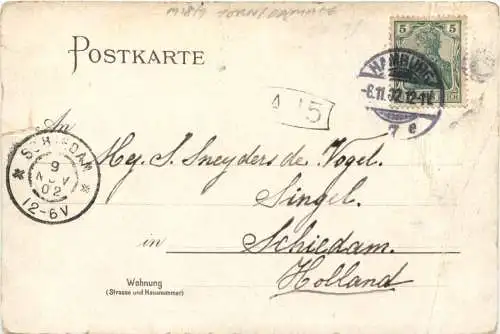 POSTKARTE
5 5
HAMBURG
-8.11.02.12-1N.
7 e
A 15
An
SCHIEDAM
9
NOV
02
12-6V
Hey. S. Sneyders de Vogel.
Singel.
in Schiedam.
Holland
Wohnung
(Strasse und Hausnummer)